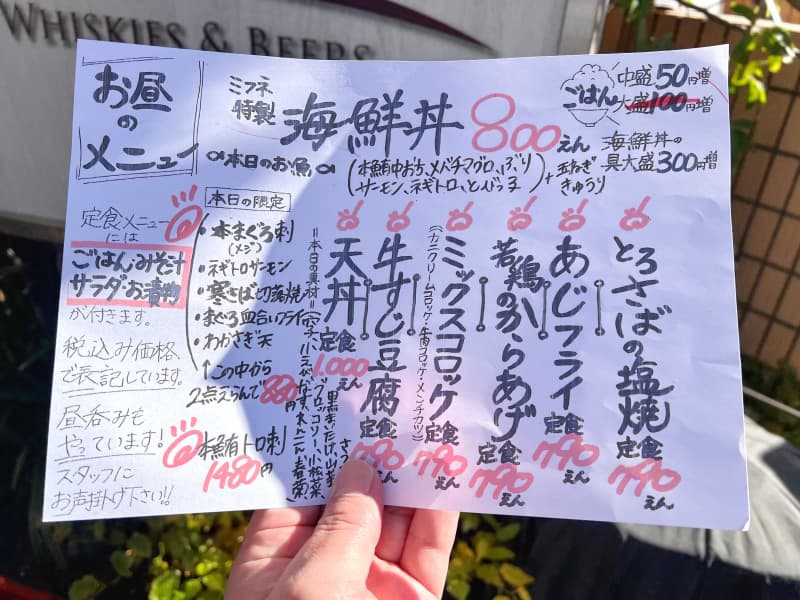 WHISKIES & BEERS
お昼
の
メニュー
ミフネ
特製
海鮮丼 800えん
ごはん
中盛50円増
大盛100円増
海鮮丼の
具大盛300円増
本日のお魚
(本鮪中おち、メバチマグロ、ぶり
サーモン、ネギトロ、とびっ子)
+玉ねぎ
きゅうり
定食メニュー
には
ごはんみそ汁
サラダお漬物
が付きます。
税込み価格、
で表記しています。
昼呑みも
やっています!
スタッフに
お声掛け下さい!!
本日の限定
・本まぐろ刺
(メジ)
・ネギトロサーモン
・寒さば切落焼
・まぐろ血合いフライ
・わかさぎ天
↑この中から
2点えらんで880円
本鮪トロ刺
1480円
とろさばの塩焼定食
790えん
あじフライ定食
790えん
若鶏のからあげ定食
790えん
ミックスコロッケ定食
(カニクリームコロッケ・牛肉コロッケ・メンチカツ)
790えん
牛すじ豆腐定食
790
天丼定食
1.000えん
=本日の具材=
ブロッコリー、小松菜